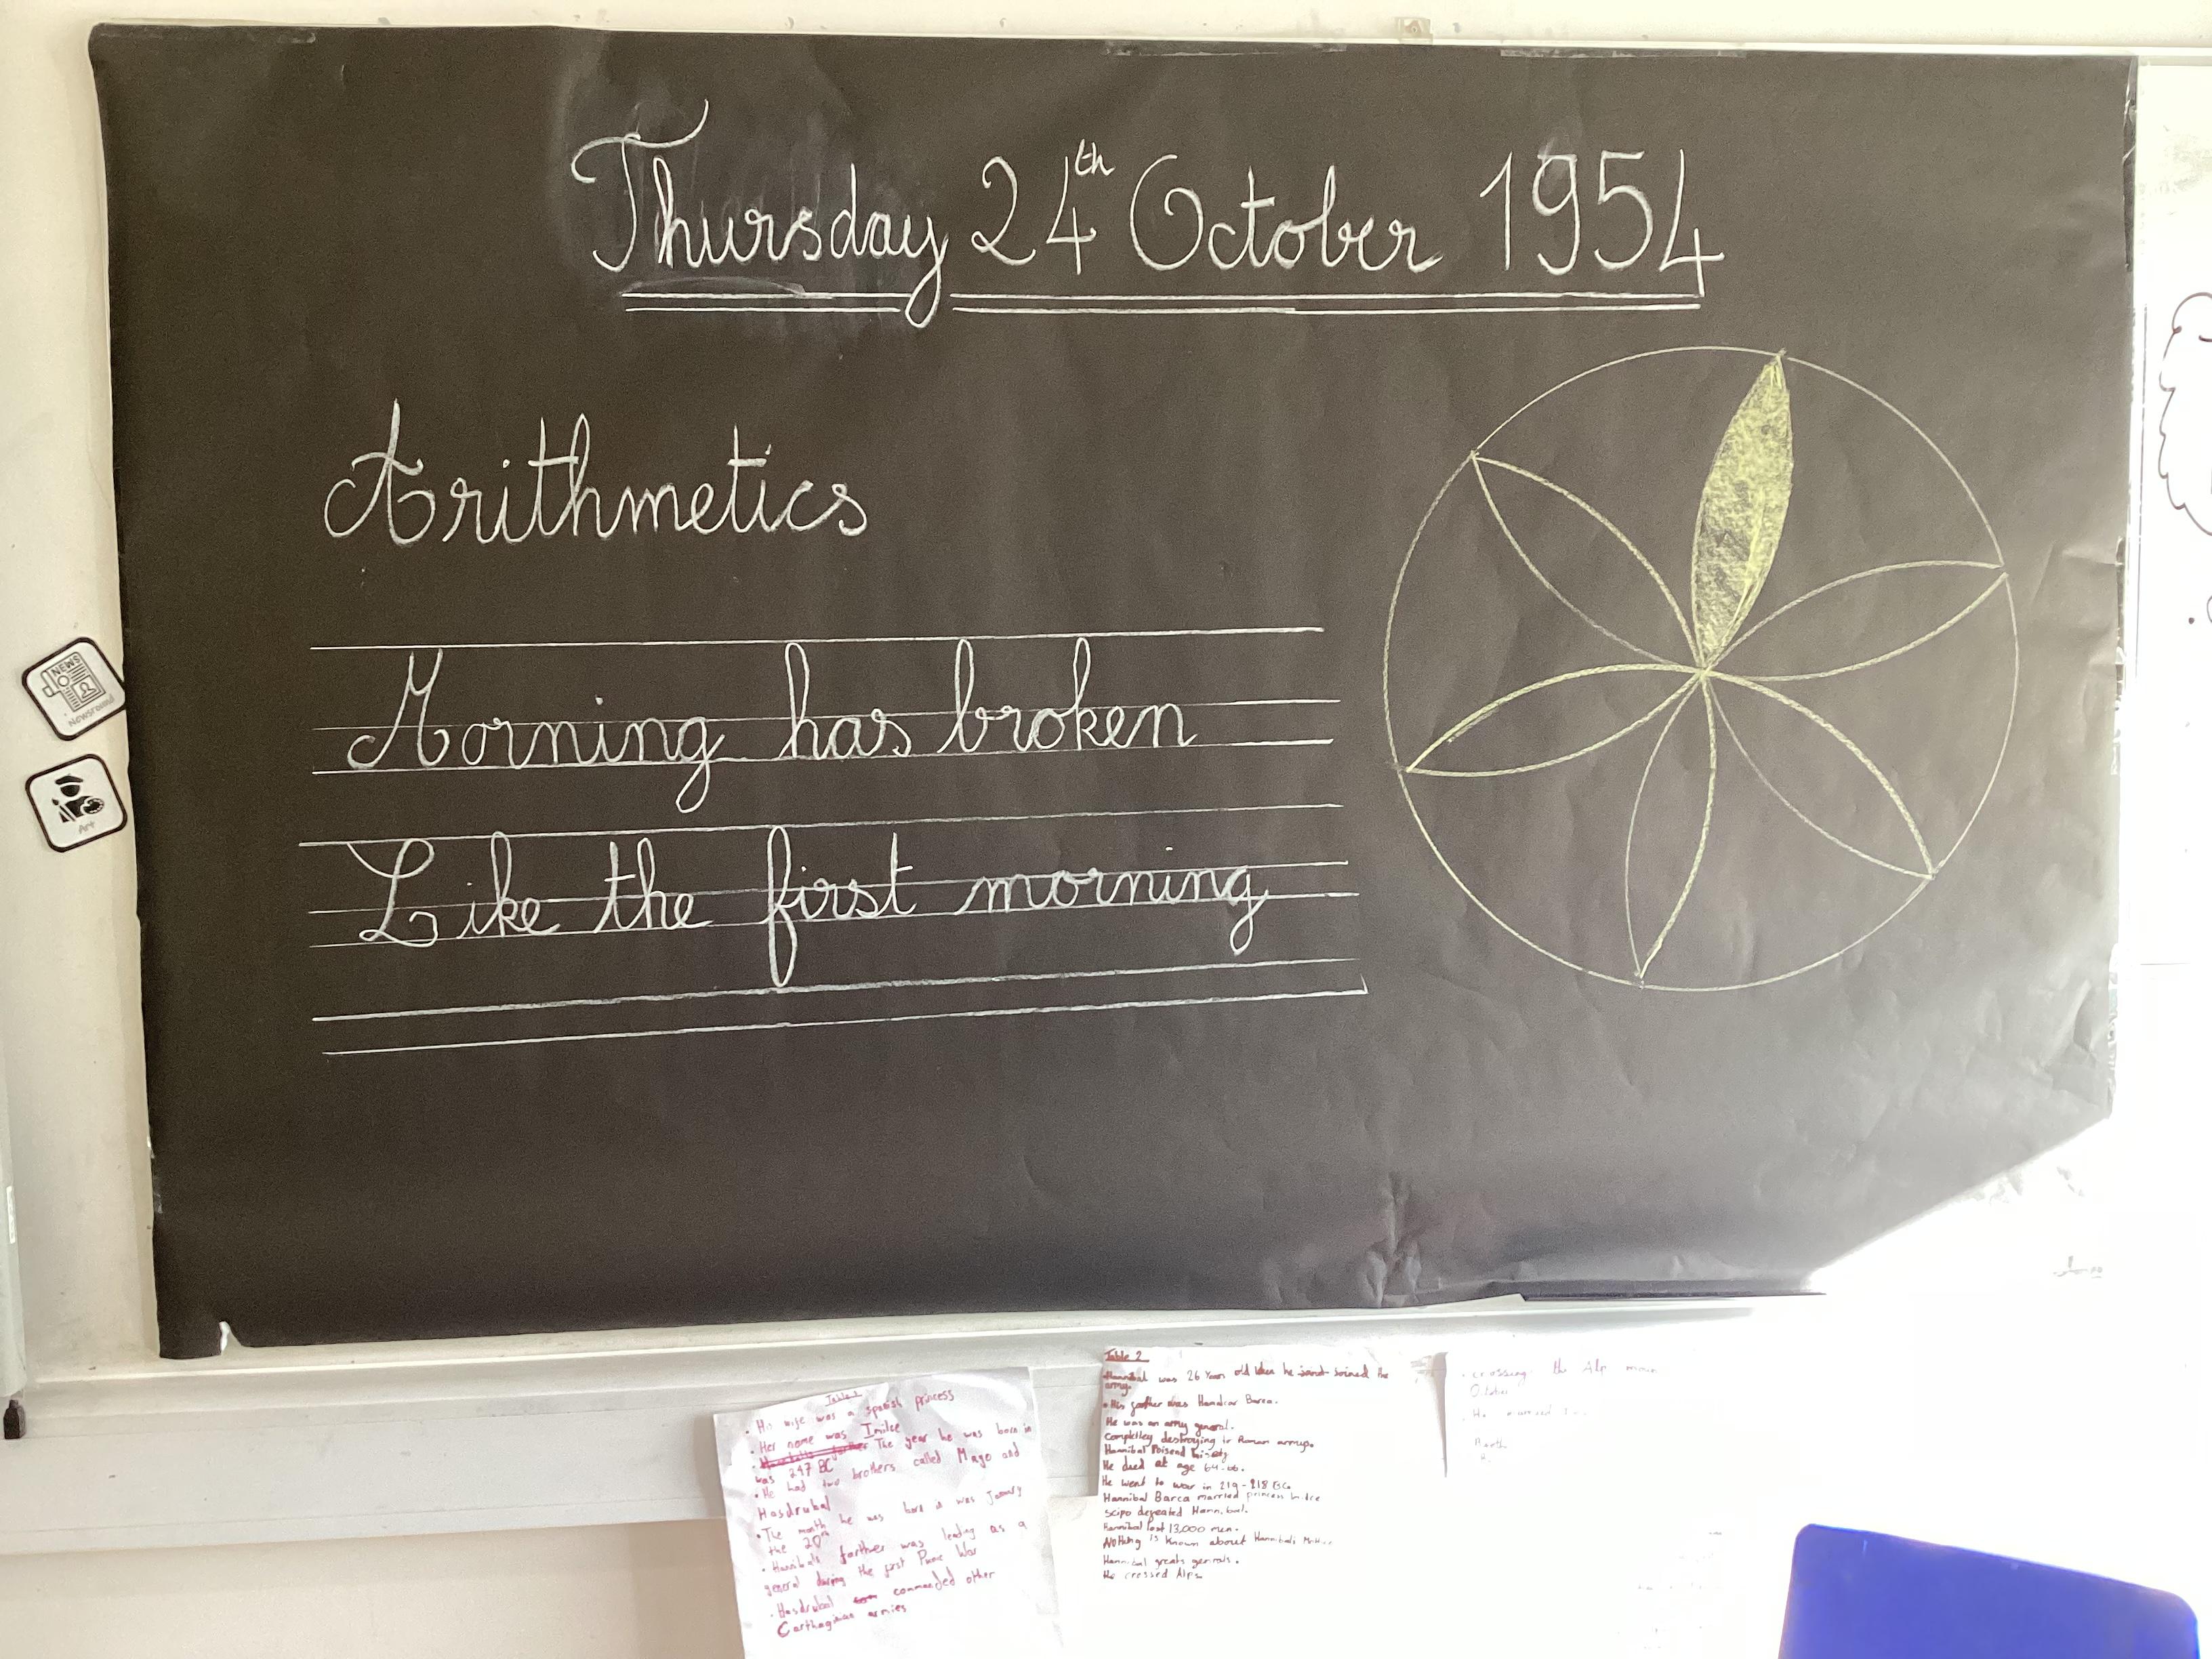 Thursday 24th October 1954
Arithmetics
Morning has broken
Like the first morning
NEWS
Newsround
Art
Table 1
• His wife was a spanish princess
• Her name was Imilce
• The year he was born in
was 247 BC
• He had two brothers called Mago and
Hasdrubal
• The month he was born in was January
the 20th
• Hannibals farther was leading as a
general during the first Punic War
• Hasdrubal commanded other
Carthaginian armies
Table 2
Hannibal was 26 Years old when he joined the
army.
• His father was Hamilcar Barca.
He was an army general.
Completley destroying the Roman armys.
Hannibal Poisend
He died at age 64-66.
He went to war in 219-218 BCe
Hannibal Barca married princess
Scipo defeated Hannibal.
Hannibal lost 13,000 men.
Nothing is Known about Hannibals
Hannibal greats generals.
He crossed Alps.
• crossing the Alp
October